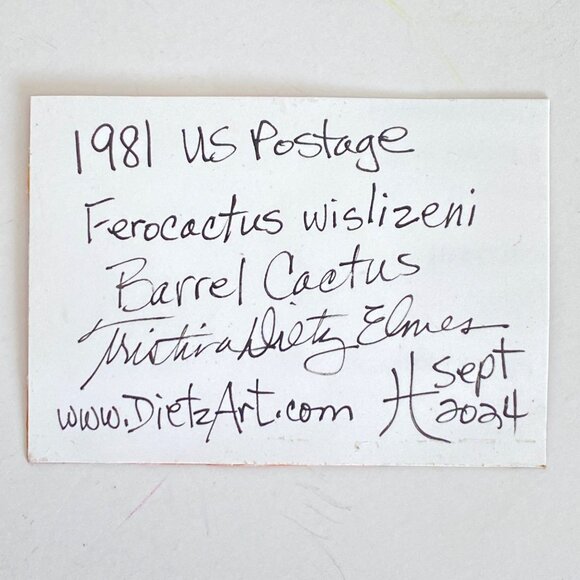 1981 US Postage
Ferocactus wislizeni
Barrel Cactus
Tristina Dietz Elmes
www.DietzArt.com
Sept
2024